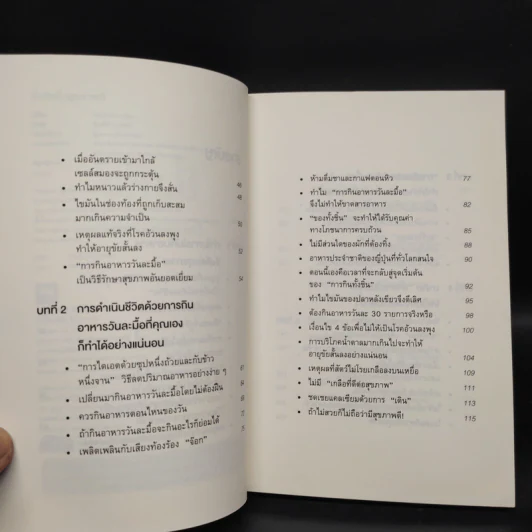 • เมื่ออันตรายเข้ามาใกล้
เซลล์สมองจะถูกกระตุ้น
• ทำไมหนาวแล้วร่างกายจึงสั่น 46
• ไขมันในช่องท้องที่ถูกเก็บสะสม 48
มากเกินความจำเป็น
• เหตุผลแท้จริงที่โรคอ้วนลงพุง
ทำให้อายุขัยสั้นลง
• “การกินอาหารวันละมื้อ”
เป็นวิธีรักษาสุขภาพอันยอดเยี่ยม 54
บทที่ 2 การดำเนินชีวิตด้วยการกิน
อาหารวันละมื้อที่คุณเอง
ก็ทำได้อย่างแน่นอน
• “การไดเอตด้วยซุปหนึ่งถ้วยและกับข้าว
หนึ่งจาน” วิธีลดปริมาณอาหารอย่างง่าย ๆ
• เปลี่ยนมากินอาหารวันละมื้อโดยไม่ต้องฝืน
• ควรกินอาหารตอนไหนของวัน
• ถ้ากินอาหารวันละมื้อจะกินอะไรก็ย่อมได้
• เพลิดเพลินกับเสียงท้องร้อง “จ๊อก”
• ห้ามดื่มชาและกาแฟตอนหิว 77
• ทำไม “การกินอาหารวันละมื้อ”
จึงไม่ทำให้ขาดสารอาหาร 82
• “ของทั้งชิ้น” จะทำให้ได้รับคุณค่า
ทางโภชนาการครบถ้วน 85
• ไม่มีส่วนใดของผักที่ต้องทิ้ง 88
• อาหารประจำชาติของญี่ปุ่นที่ทั่วโลกสนใจ 90
• ตอนนี้เองคือเวลาที่จะกลับสู่จุดเริ่มต้น
ของ “การกินทั้งชิ้น” 92
• ทำไมไขมันของปลาหลังเขียวจึงดีเลิศ 95
• ต้องกินอาหารวันละ 30 รายการจริงหรือ 98
• เงื่อนไข 4 ข้อเพื่อไม่ให้เป็นโรคอ้วนลงพุง 100
• การบริโภคน้ำตาลมากเกินไปจะทำให้
อายุขัยสั้นลงอย่างแน่นอน 104
• เหตุผลที่สัตว์ไม่โรยเกลือลงบนเหยื่อ 109
• ไม่มี “เกลือที่ดีต่อสุขภาพ” 111
• ชดเชยแคลเซียมด้วยการ “เดิน” 113
• ถ้าไม่สวยก็ไม่ถือว่ามีสุขภาพดี! 115